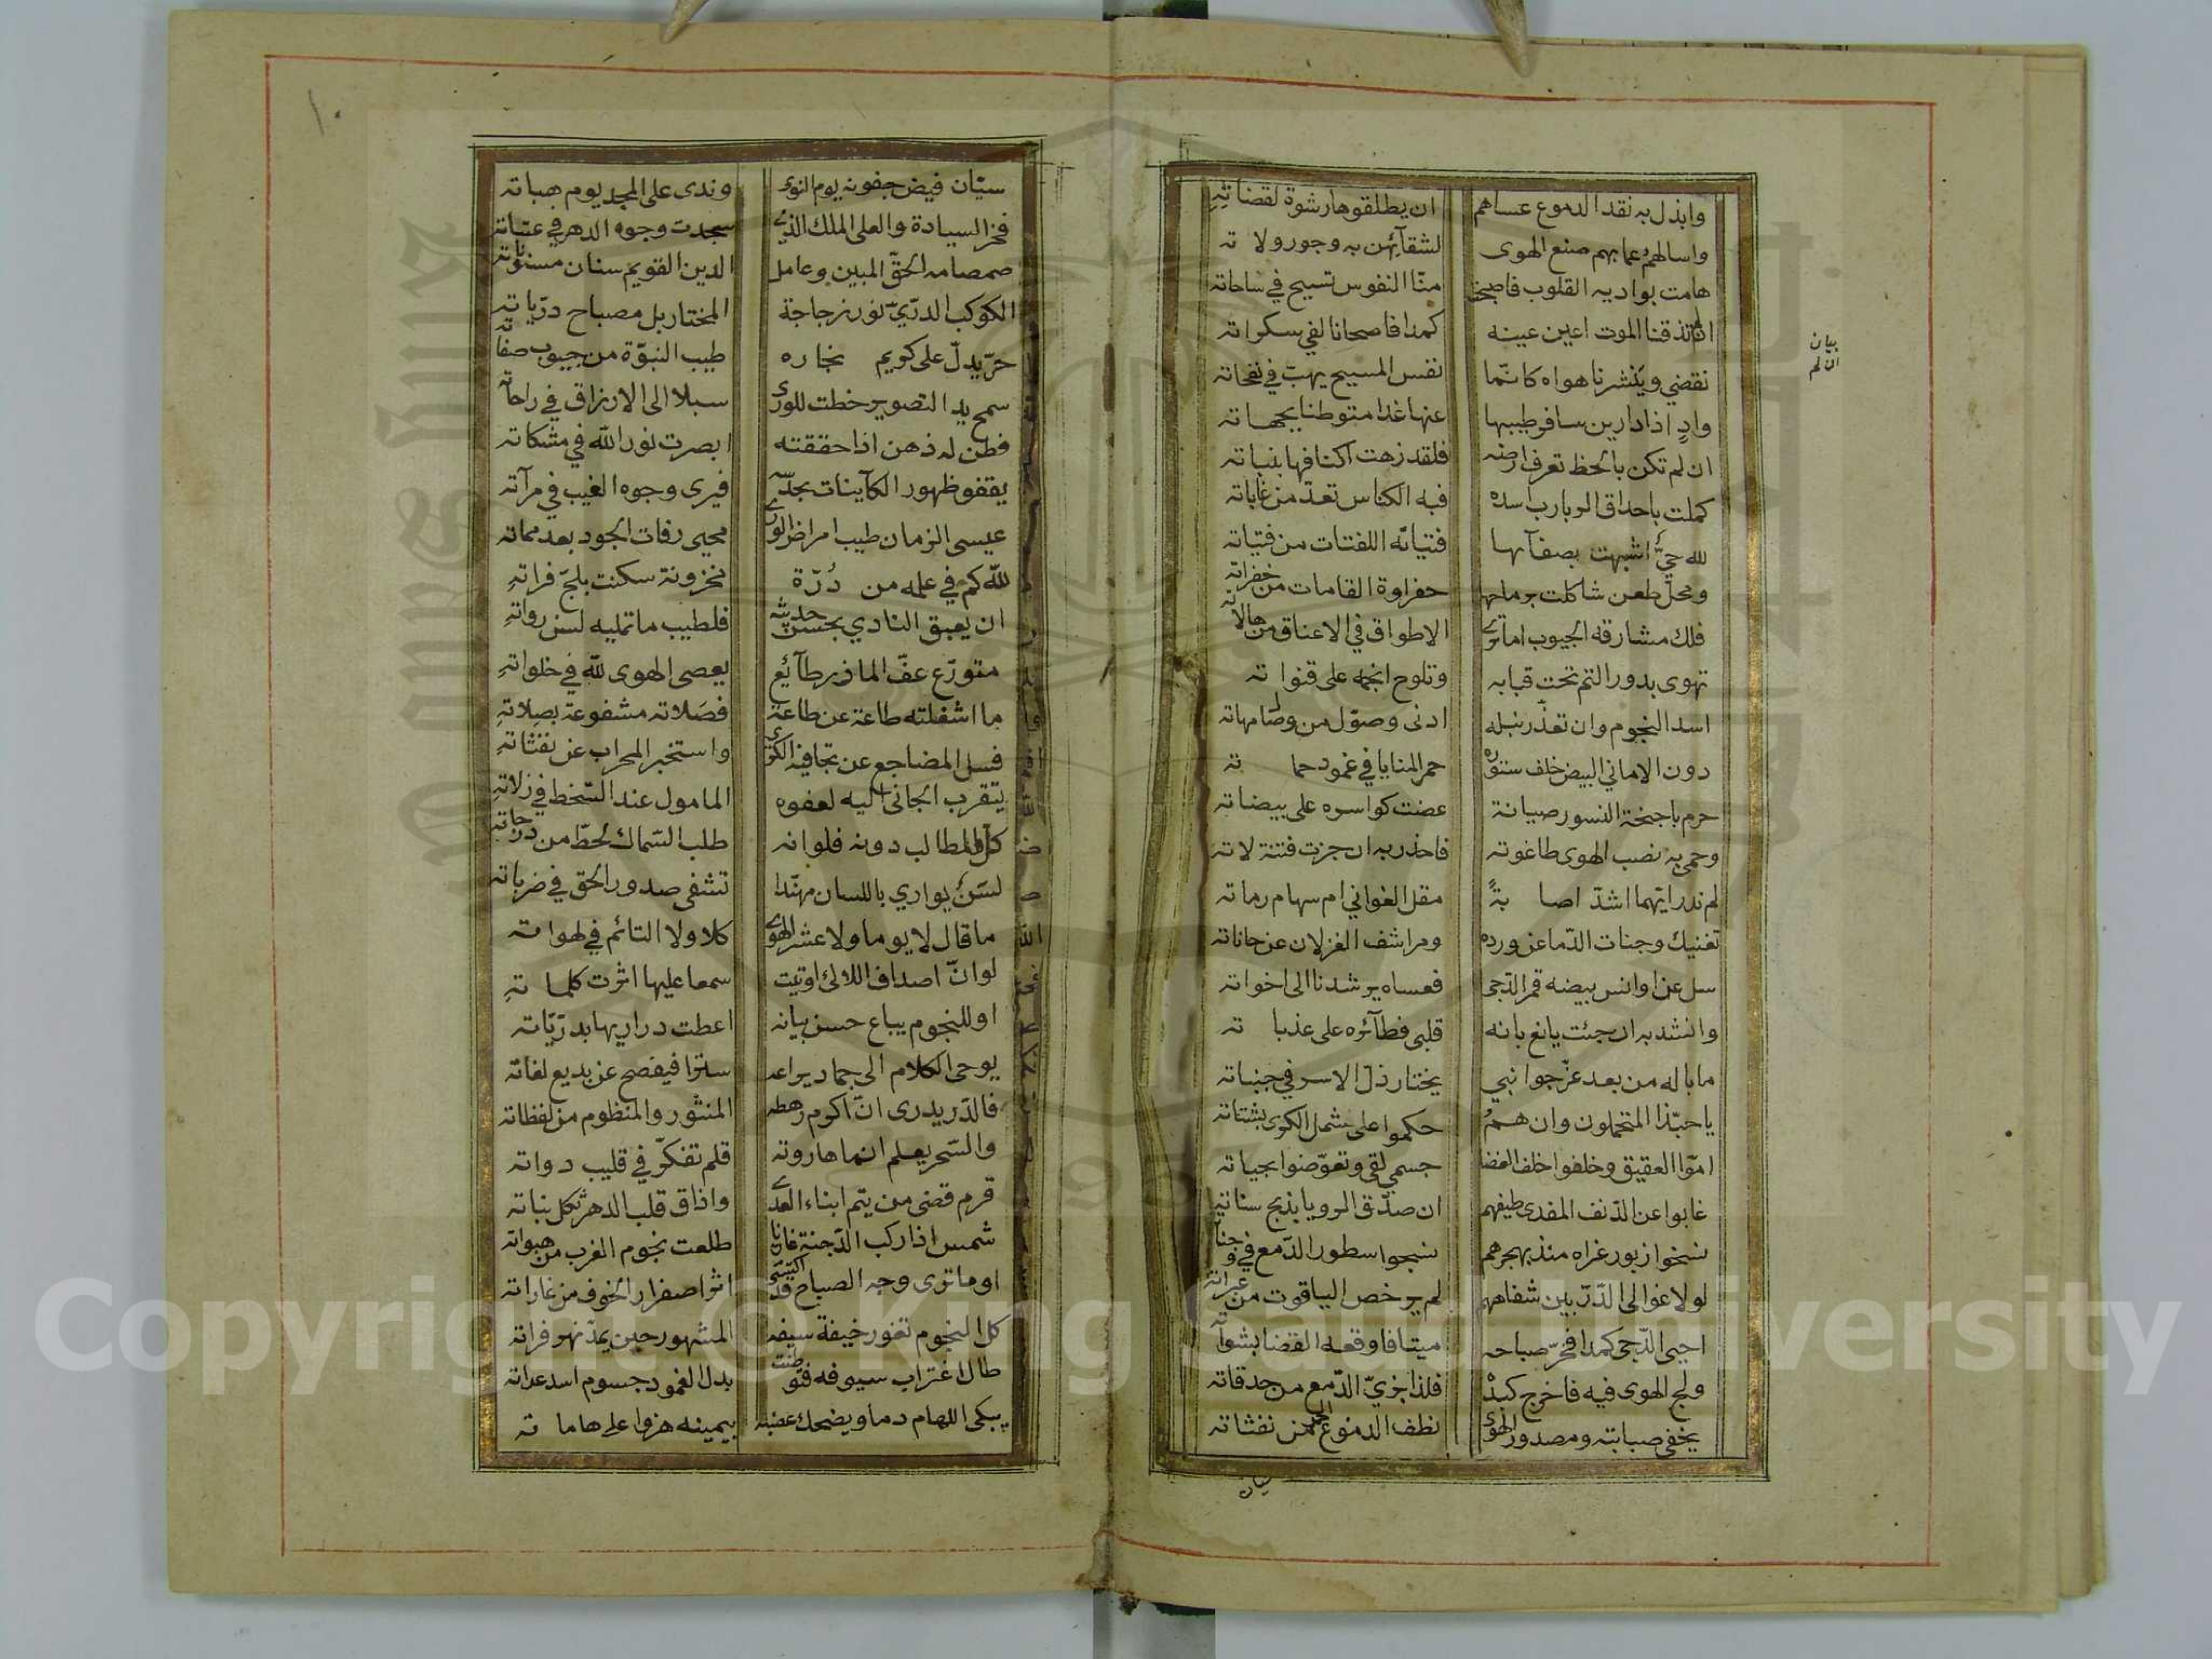 وابذل به نقد الدموع عساهم ان يطلقوها رشوة لقضاتهِ
واسالهمُ عما بهم صنع الهوى لشقآئهن به وجور ولا ته
هامت بواديه القلوب فاصبحت منّا النفوس تسيح في ساحاته
ان لم تذقنا الموت اعين عينه كمدا فاصحانا لفي سكراته
نقضي وينشرنا هواه كانّما نفس المسيح يهبّ في نفحاته
وادٍ اذا دارين سافر طيبها عنها غدا متوطنا بجهاته
ان لم تكن بالحظ تعرف ارضه فلقد زهت اكنافها بنباته
كملت باحداق الربارب اسده فبه الكناس تعدّ من غاباته
لله حيٌّ اشبهت بصفآحها فتيانّه اللفتات من فتياته
ومحلّ طعن شاكلت برماحها حفراوة القامات من خفراته
فلك مشارقه الجيوب اما ترى الاطواق في الاعناق من هالاته
تهوى بدور التم تحت قبابه وتلوح انجمه على قنوا ته
اسد النجوم وان تعذّر نيله ادنى وصوّل من وصّامهاته
دون الاماني البيض خلف ستوره حمر المنايا في غمود حما ته
حرم باجنحة النسور صيانة عضت كواسره على بيضاته
وحمى به نصب الهوى طاغوته فاحذر به ان جزت فتنة لاته
لم ندر ايّهما اشدّ اصا بةً مقل الغواني ام سهام رماته
تغنيك وجنات الدّما عن ورده ومراشف الغزلان عن حاناته
سل عن اوانس بيضه قمر الدّجى فعساه يرشدنا الى اخواته
وانشد به ان جئت يانع بانه قلبى فطآئره على عذبا ته
ما باله من بعد عزّ جوانبي يختار ذل الاسر في جنباته
يا حبّذا المتحملون وان همُ حكموا على شمل الكرى بشتاته
امّوا العقيق وخلفوا خلف الغضا جسمي لقى وتعوّضوا بحياته
غابوا عن الدّنف المفدى طيفهم ان صدّق الرويا بذبح سناته
نسخوا زبور غراه منذ بهجرهم نسجوا سطور الدّمع في وجناته
لولا غوالى الدّرّ بين شفاههم لم يرخص الياقوت من عبراته
احيى الدّجى كمدا فخرّ صباحه ميتا فاوقعه القضا بشواته
ولج الهوى فيه فاخرج كبدْ فلذا جزيّ الدّمع من حدقاته
يخفي صبابته ومصدور الهوى نطف الدموع الحمر من نفثاته
سيّان
بيان
ان لم
١٠
سيّان فيض جفونه يوم النوى وندى على المجد يوم هباته
فخر السيادة والعلى الملك الذي سجدت وجوه الدهر في عتباته
صمصامه الحقّ المبين وعامل الدين القويم سنان مسنوناته
الكوكب الدرّيّ نور زجاجة المختار بل مصباح درّياته
حرّ يدلّ على كريم نجاره طيب النبوّة من جيوب صفاته
سمح يد التصوير خطت للورى سبلا الى الارزاق في راحاته
فطن له ذهن اذا حققته ابصرت نور الله في مشكاته
يقفو ظهور الكآينات بجدّه فيرى وجوه الغيب في مرآته
عيسى الزمان طيب امراض الورى محيى رفات الجود بعد مماته
لله كم في علمه من دُرّة مخزونة سكنت بلجّ فراتهِ
ان يعبق النادي بحسن حديثه فلطيب ما تمليه لسن رواتهِ
متورّع عفّ المازر طآئع يعصى الهوى لله في خلواتهِ
ما اشغلته طاعة عن طاعة فصَلاته مشفوعة بصِلاتهِ
فسل المضاجع عن تجافيه الكرى واستخبر المحراب عن نفثاتهِ
يتقرب الجانى اليه لعفوه المامول عند السّخط في زلاتهِ
كلّ المطالب دونه فلوانه طلب السّماك لحطّ من درجاته
لسَنٌ يواري باللسان مهنّدا تشفى صدور الحق في ضرباته
ما قال لا يوما ولا عشر الهوى كلا ولا التائم في لهوا ته
لو انّ اصداف اللالئ اوتيت سمعا عليها اثرت كلما تهِ
او للنجوم يباع حسن بيانه اعطت دراريها بدرّيّاته
يوحى الكلام الى جماد يراعه ستزا فيفصح عن بديع لغاته
فالدّر يدرى انّ اكرم رهطه المنثور والمنظوم من لفظاته
والسّحر يعلم انما هاروته قلم تفكّر في قليب دواته
قرم قضى من يتم ابناء العدى واذاق قلب الدهر ثكل بناته
شمس اذا ركب الدّجنة غازيا طلعت نجوم الغرب من هبواته
او ما ترى وجه الصباح قد اكتسى اثرا صفرار الخوف من غاراته
كل النجوم تغور خيفة سيفه المشهور حين يمدّ نهر فراته
طال اغتراب سيوفه فتوطنت بدل الغمود جسوم اسد عداته
يبكى اللهام دما ويضحك عضبه بيمينه هزوا على هاما ته
Copyright © King Saud University